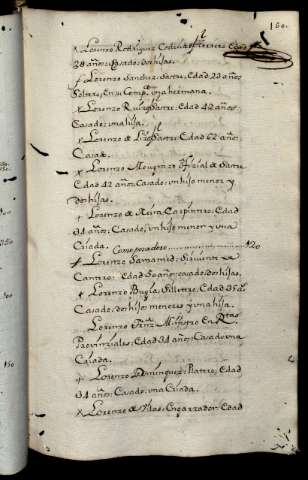 150.
x Lorenzo Rodriguez Edad
38 años; Casado, dos hijas.
x Lorenzo Sanchez, Sastre, Edad 23 años
Soltero, En su Comp.ª vna hermana.
x Lorenzo Ruiz, Sastre, Edad 48 años,
Casado, vna hija.
x Lorenzo de Sastre, Edad 62 año
Casado.
x Lorenzo Oficial de Sastre
Edad 42 años, Casado, vn hijo menor y
dos hijas
x Lorenzo de Mora Carpintero, Edad
31 años, Casado, vn hijo menor y vna
Criada. Como posadero 120
x Lorenzo Samaniego, Siruiente de
Cantero, Edad 50 años, casado, dos hijas.
x Lorenzo Bugla, Silletero, Edad 35 as.
Casado, dos hijos menores y vna hija.
Lorenzo Frnz, Ministro En Rtas
Prouinziales, Edad 38 años, Casado vna
Criada.
x Lorenzo Dominguez, Platero, Edad
31 años; Casado, vna Criada.
x Lorenzo de Engarzador, Edad
150